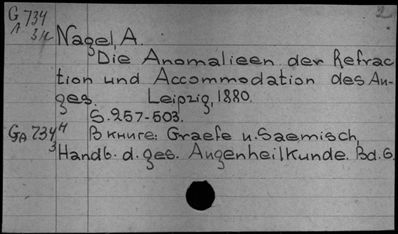 G 734
1 34
2
Nagel, A.
Die Anomalieen der Refrac
tion und Accommodation des Au-
ges. Leipzig, 1880.
S. 257-503.
GA 734 H
3
В книге: Graefe u. Saemisch,
Handb. d. ges. Augenheilkunde. Bd. 6.